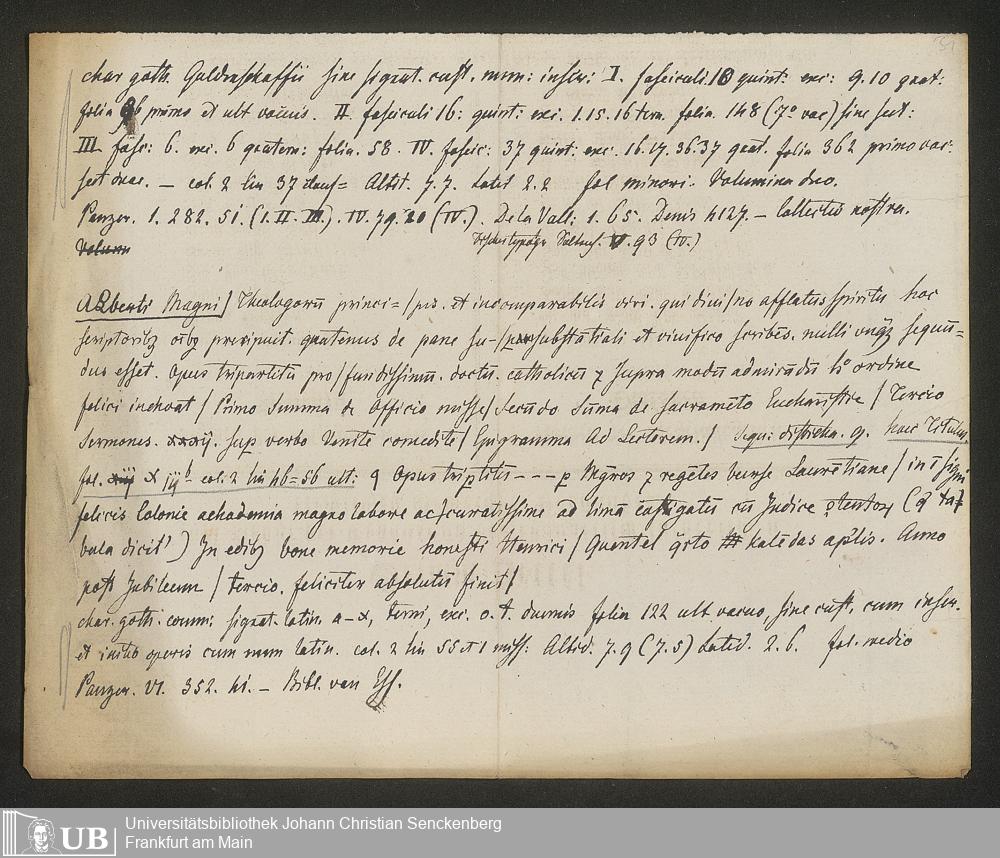 char goth. Guldenschaffii sine signat. cust. num: inscr: I. fasciculi 10 quint: exc: 9. 10 quat:
folia 96 primo et ult vacuis. II fasciculi 16: quint: exc. 1. 15. 16 tern. folia 148 (7° vac) sine sect:
III fasc: 6. exc. 6 quatern: folia. 58. IV. fascic: 37 quint: exc. 16. 17. 36. 37 quat. folia 362 primo vac:
sect — col. 2 lin 37 Altit. 7. 7. Latit 2. 2 fol minori. Volumina duo.
Panzer. 1. 282. 51. (1. II. III). IV. 79. 20 (IV). De la Vall: 1. 65. Denis 4127. — Collectio nostra.
Volum V. 93 (IV.)
Alberti Magni / Theologorū princi= / pis. et incomparabilis viri. qui divi / no afflatus spiritu hoc
scriptoribȝ oībȝ preripuit. quatenus de pane su- / persubstātiali et vivifico scribēs. nulli unqȝ secun̄=
dus esset. Opus tripartitū pro / fundissimū. doctū. catholicū ⁊ supra modū admirādū hº ordine
felici inchoat / Primo Summa de Officio misse / Secūdo Sūma de sacramēto Eucharistie / Tercio
Sermones. xxxij. sup verbo Venite comedite / Epigramma Ad Lectorem. / sequ: disticha. q. haec Titulus.
fol. x iijᵇ col. 2 lin 46=56 ult: q Opus tripītitū --- p Mgros ⁊ regētes burse Laurētiane / in īsigni
felicis Colonie achademia magno labore ac / curatissime ad limū castigatū cū Indice (q̄ ta
bula dicit') In edibȝ bone memorie honesti Henrici / Quentel q̄rto kalēdas ap̄lis. Anno
post Jubileum / tercio. feliciter absolutū finit /
char. goth. comm: signat. latin. a—x, terni, exc. o. t. duernis folia 122 ult vacuo, sine cust, cum inscr.
et initio operis cum num latin. col. 2 lin 55 et 1 Altid. 7. 9 (7. 5) Latid. 2. 6. fol. medio
Panzer. VI. 352. 41. — Bibl. van Ess.
UB
Universitätsbibliothek Johann Christian Senckenberg
Frankfurt am Main